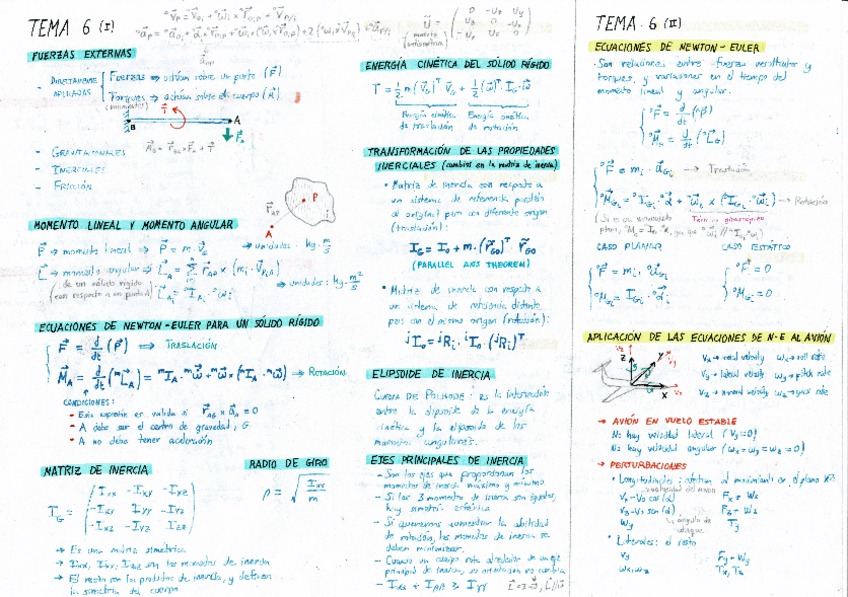 TEMA 6 (I)
FUERZAS EXTERNAS
- DIRECTAMENTE APLICADAS
Fuerzas ⟹ actúan sobre un punto (F⃗)
Torques ⟹ actúan sobre el cuerpo (R⃗)
(momentos)
T⃗
B
A
F⃗ₐ
- GRAVITACIONALES
- INERCIALES
- FRICCIÓN
P
A
MOMENTO LINEAL Y MOMENTO ANGULAR
P⃗ → momento lineal ⟹ P⃗ = m · v⃗G → unidades: kg · m/s
L⃗ → momento angular ⟹
(de un sólido rígido
con respecto a un punto A)
→ unidades: kg · m²/s
ECUACIONES DE NEWTON-EULER PARA UN SÓLIDO RÍGIDO
F⃗ = d/dt (P⃗) ⟹ TRASLACIÓN
M⃗A = d/dt (ᵐL⃗A) = ᵐIA · ᵐω⃗ + ᵐω⃗ × (ᵐIA · ᵐω⃗) ⟹ ROTACIÓN
CONDICIONES:
- Esta expresión es válida si r⃗AG × a⃗A = 0
- A debe ser el centro de gravedad, G
- A no debe tener aceleración
MATRIZ DE INERCIA
RADIO DE GIRO
IG = ( Ixx -Ixy -Ixz
-Ixy Iyy -Iyz
-Ixz -Iyz Izz )
ρ = √(Ixx/m)
→ Es una matriz simétrica
→ Ixx, Iyy, Izz son los momentos de inercia
→ El resto son los productos de inercia, y definen
la simetría del cuerpo
ENERGÍA CINÉTICA DEL SÓLIDO RÍGIDO
T = 1/2 m (v⃗G)ᵀ · v⃗G + 1/2 (ω⃗)ᵀ · IG · ω⃗
Energía cinética de traslación
Energía cinética de rotación
TRANSFORMACIÓN DE LAS PROPIEDADES
INERCIALES (cambios en la matriz de inercia)
• Matriz de inercia con respecto a
un sistema de referencia paralelo
al original pero con diferente origen
(traslación):
IG = I0 + m · (r⃗GO)ᵀ · r⃗GO
(PARALLEL AXIS THEOREM)
• Matriz de inercia con respecto a
un sistema de referencia distinto
pero con el mismo origen (rotación):
ʲI0 = ʲRi · ⁱI0 · (ʲRi)ᵀ
ELIPSOIDE DE INERCIA
CURVA DE POLHODE: es la intersección
entre la elipsoide de la energía
cinética y la elipsoide de los
momentos angulares.
EJES PRINCIPALES DE INERCIA
- Son los ejes que proporcionan los
momentos de inercia máximo y mínimo
- Si los 3 momentos de inercia son iguales,
hay simetría esférica
- Si queremos la
de rotación, los momentos de inercia se
deben minimizar.
- Cuando un cuerpo rota alrededor de un eje
principal de inercia, su orientación no cambia
- Ixx + Izz ≥ Iyy
TEMA 6 (II)
ECUACIONES DE NEWTON-EULER
- Son relaciones entre fuerzas resultantes y
torques, y variaciones en el tiempo del
momento lineal y angular.
⁰F⃗ = d/dt (⁰P⃗)
⁰M⃗G = d/dt (⁰L⃗G)
⁰F⃗ = mi · ⁰a⃗Gi → Traslación
⁰M⃗Gi = ⁰IGi · ⁰α⃗i + ⁰ω⃗i × (⁰IGi · ⁰ω⃗i) → Rotación
Término giroscópico
CASO PLANAR
CASO ESTÁTICO
⁰F⃗ = mi · ⁰a⃗Gi
⁰M⃗Gi = IGi · ⁰α⃗i
⁰F⃗ = 0
⁰M⃗G = 0
APLICACIÓN DE LAS ECUACIONES DE N-E AL AVIÓN
Z
Y
X
Vx → axial velocity ωx → roll rate
Vy → lateral velocity ωy → pitch rate
Vz → normal velocity ωz → yaw rate
→ AVIÓN EN VUELO ESTABLE
No hay velocidad lateral (Vy = 0)
No hay velocidad angular (ωx = ωy = ωz = 0)
→ PERTURBACIONES
• Longitudinales: afectan al movimiento en el plano XZ
velocidad del avión
ángulo de ataque
ωy Ty
• Laterales: el resto
Vy
ωx, ωz Tx, Tz